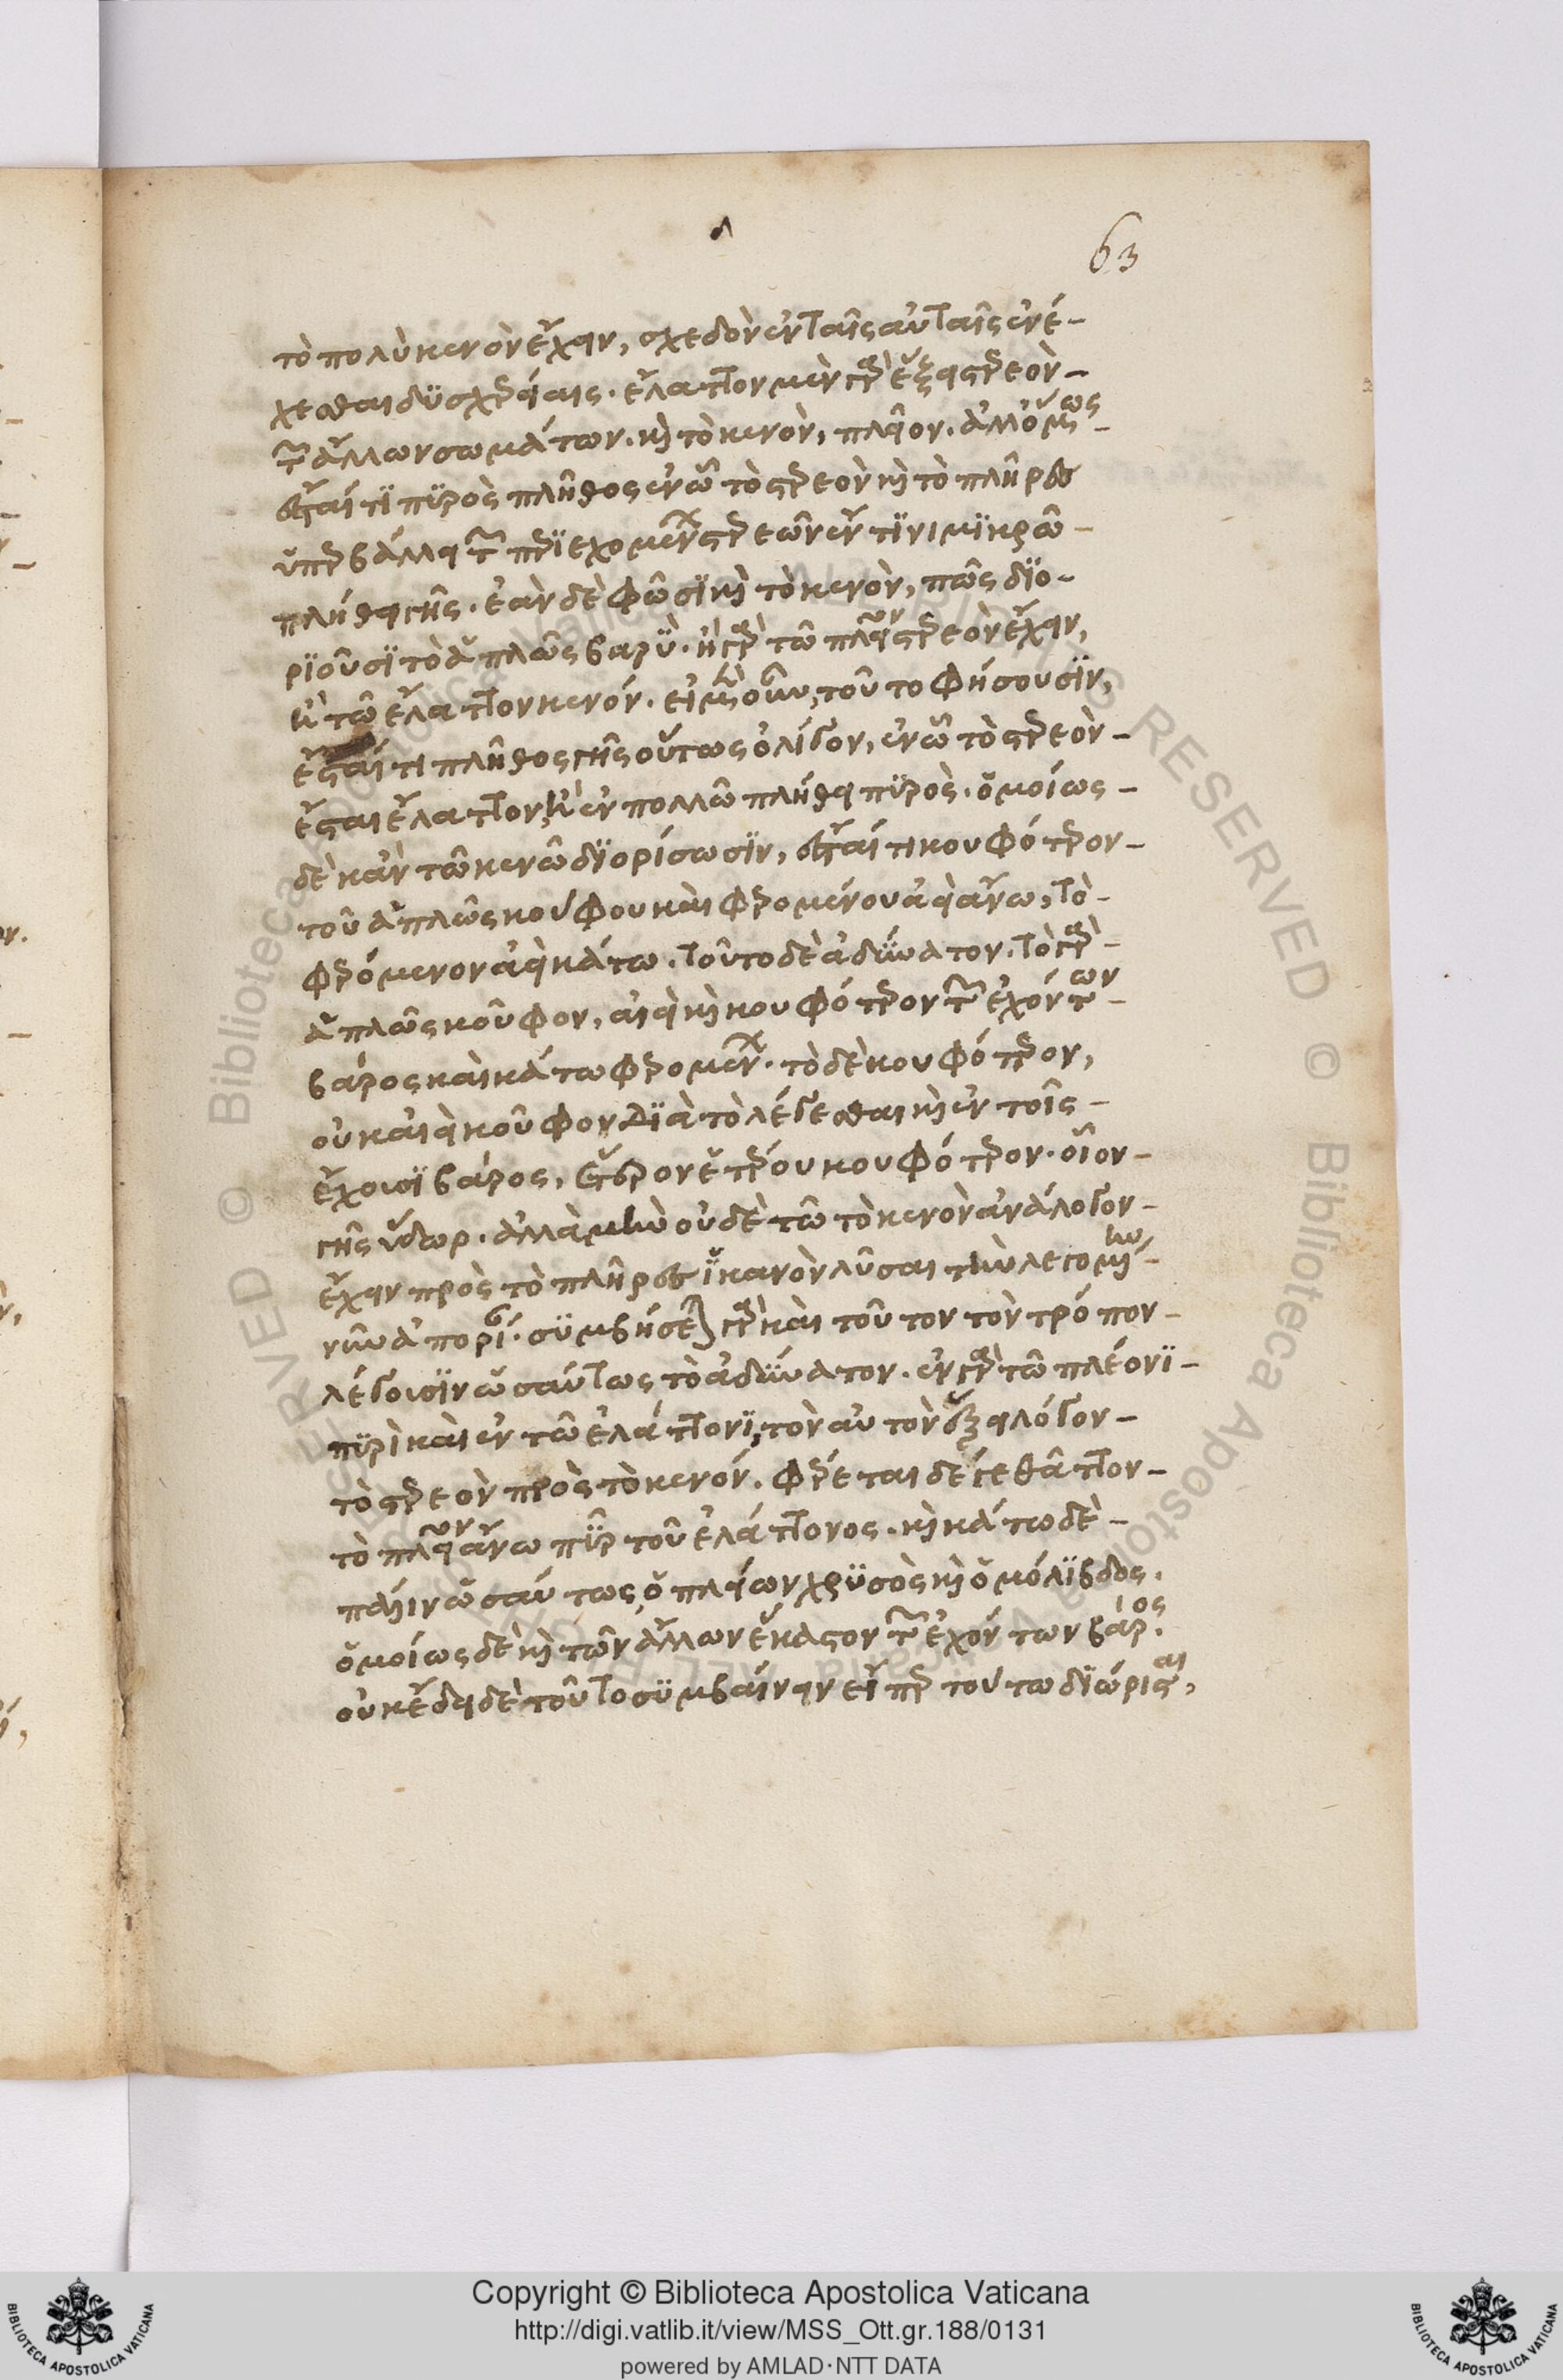 63
τὸ πολὺ κενὸν ἔχειν, σχεδὸν ἐν ταῖς αὐταῖς ἐνέ-
χεσθαι δϋσχερείαις. ἔλαττον μὲν γὰρ ἕξει στερεὸν-
τῶν ἄλλων σωμάτων. καὶ τὸ κενὸν, πλεῖον. ἀλλ' ὅμως-
ἔσται τϊ πϋρὸς πλῆθος ἐν ὧ τὸ στερεὸν καὶ τὸ πλῆρες
ὑπερβάλλει τῶν περϊεχομένων στερεῶν ἔν τϊνι μϊκρῶ-
πλήθει γῆς. ἐὰν δὲ φῶσϊ καὶ τὸ κενὸν, πῶς δϊο-
ρϊοῦσϊ τὸ ἁπλῶς βαρϋ. ἢ γὰρ τῶ πλεῖον στερεὸν ἔχειν,
ἢ τῶ ἔλαττον κενόν. εἰ μὲν οὖν, τοῦτο φήσουσϊν,
ἔσται τι πλῆθος γῆς οὕτως ὀλίγον, ἐν ὧ τὸ στερεὸν-
ἔσται ἔλαττον, ἢ ἐν πολλῶ πλήθει πϋρὸς. ὁμοίως-
δὲ κἂν τῶ κενῶ δϊορίσωσϊν, ἔσται τι κουφότερον-
τοῦ ἁπλῶς κούφου καὶ φερομένου ἀεὶ ἄνω, τὸ-
φερόμενον ἀεὶ κάτω. τοῦτο δὲ ἀδϋνατον. τὸ γὰρ-
ἁπλῶς κοῦφον, αἰεὶ καὶ κουφότερον τῶν ἐχόντων-
βάρος καὶ κάτω φερομένων. τὸ δὲ κουφότερον,
οὐκ αἰεὶ κοῦφον δϊὰ τὸ λέγεσθαι καὶ ἐν τοῖς-
ἔχουσϊ βάρος, ἕτερον ἑτέρου κουφότερον. οἷον-
γῆς ὕδωρ. ἀλλὰ μὴν οὐδὲ τῶ τὸ κενὸν ἀνάλογον-
ἔχειν πρὸς τὸ πλῆρες ἱκανὸν λῦσαι τὴν λεγομένην-
νῦν ἀπορίαν. σϋμβήσεται γὰρ καὶ τοῦτον τὸν τρόπον-
λέγουσϊν ὡσαύτως τὸ ἀδϋνατον. ἐν γὰρ τῶ πλέονϊ-
πϋρὶ καὶ ἐν τῶ ἐλάττονϊ, τὸν αὐτὸν ἕξει λόγον-
τὸ στερεὸν πρὸς τὸ κενόν. φέρεται δέ γε θᾶττον-
τὸ πλεῖον ἄνω πῦρ τοῦ ἐλάττονος. καὶ κάτω δὲ-
πάλιν ὡσαύτως, ὁ πλείων χρϋσὸς καὶ ὁ μόλϊβδος.
ὁμοίως δὲ καὶ τῶν ἄλλων ἕκαστον τῶν ἐχόντων βάρος.
οὐκ ἔδει δὲ τοῦτο σϋμβαίνειν εἴπερ τούτω δϊώρισται,
Copyright © Biblioteca Apostolica Vaticana
http://digi.vatlib.it/view/MSS_Ott.gr.188/0131
powered by AMLAD·NTT DATA
BIBLIOTECA APOSTOLICA VATICANA
BIBLIOTECA APOSTOLICA VATICANA